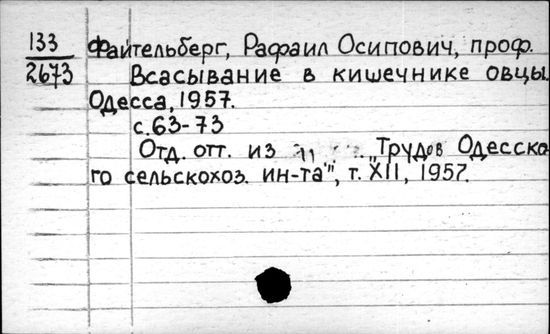 133 Файтельберг, Рафаил Осипович, проф.
2673 Всасывание в кишечнике овцы.
Одесса, 1957.
с. 63-73
Отд. отт. из „Трудов Одесско
го сельскохоз. ин-та", т. XII, 1957.